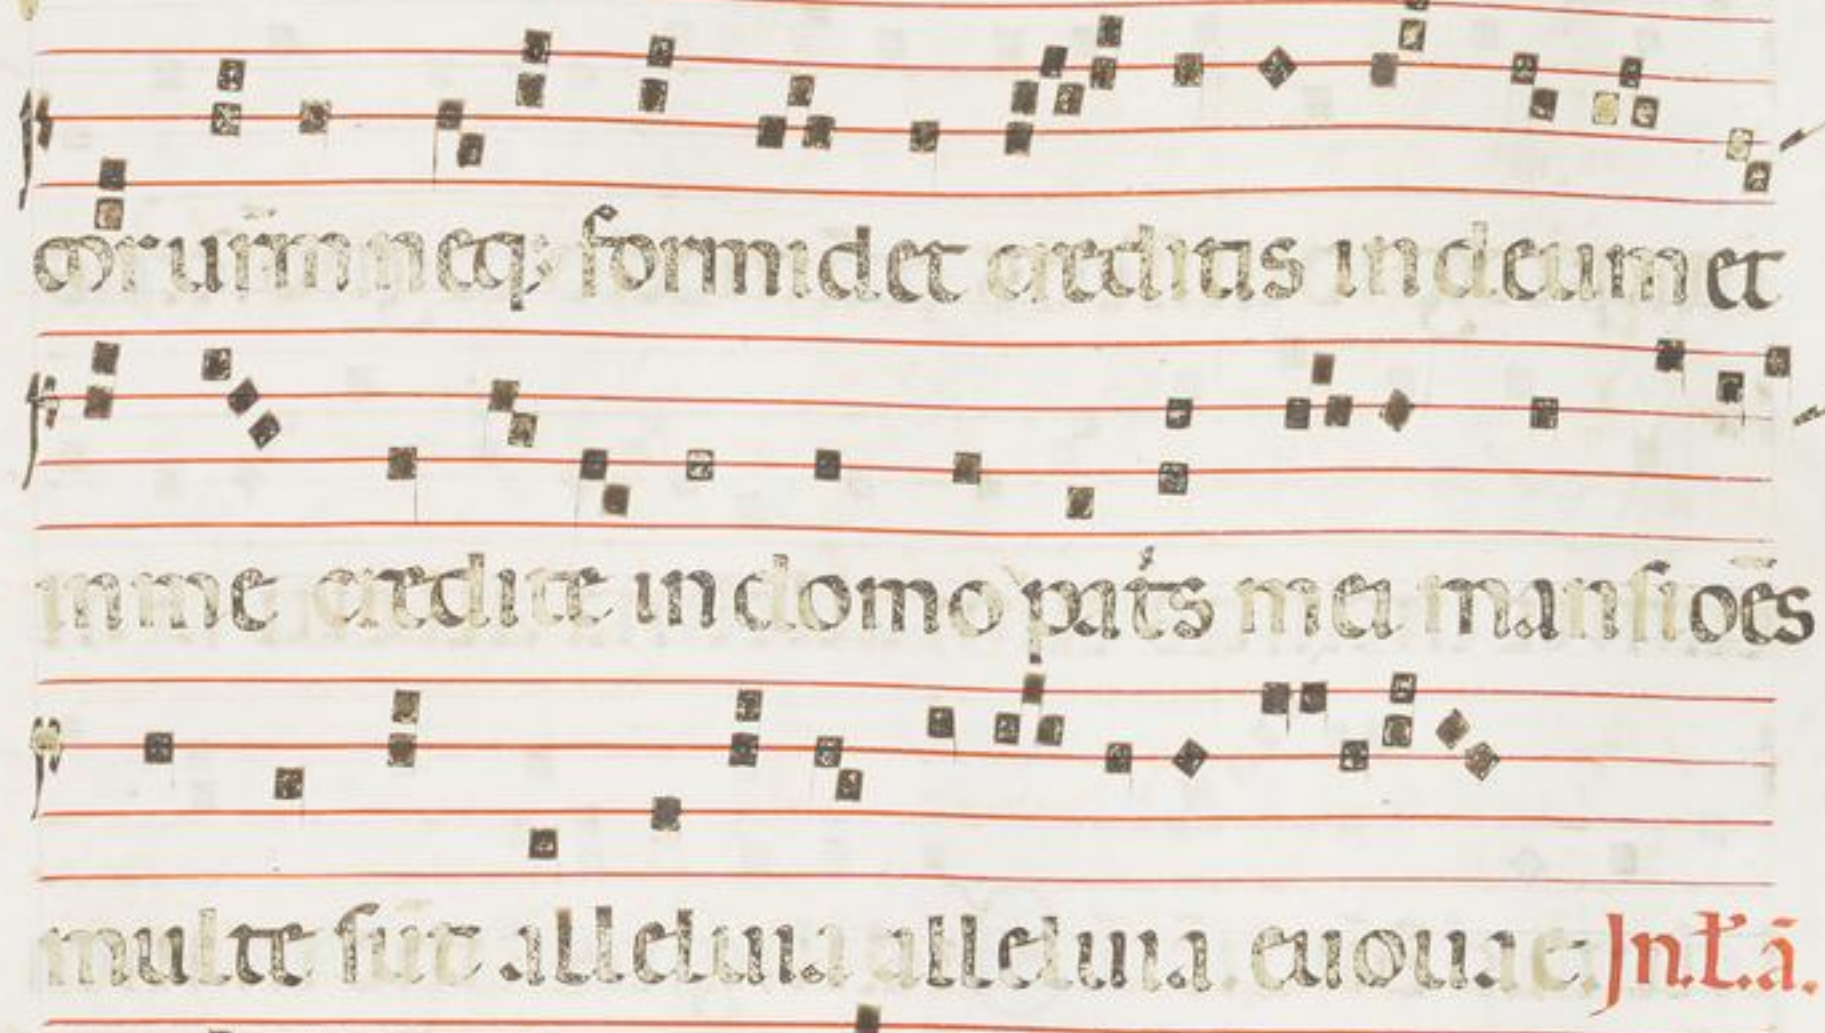 cor urm̄ neq; formidet creditis in deum et
in me credite in domo pat̾s mei mansiōes
multe sūt alleluia alleluia. euouae. Jn.t̾.ā.